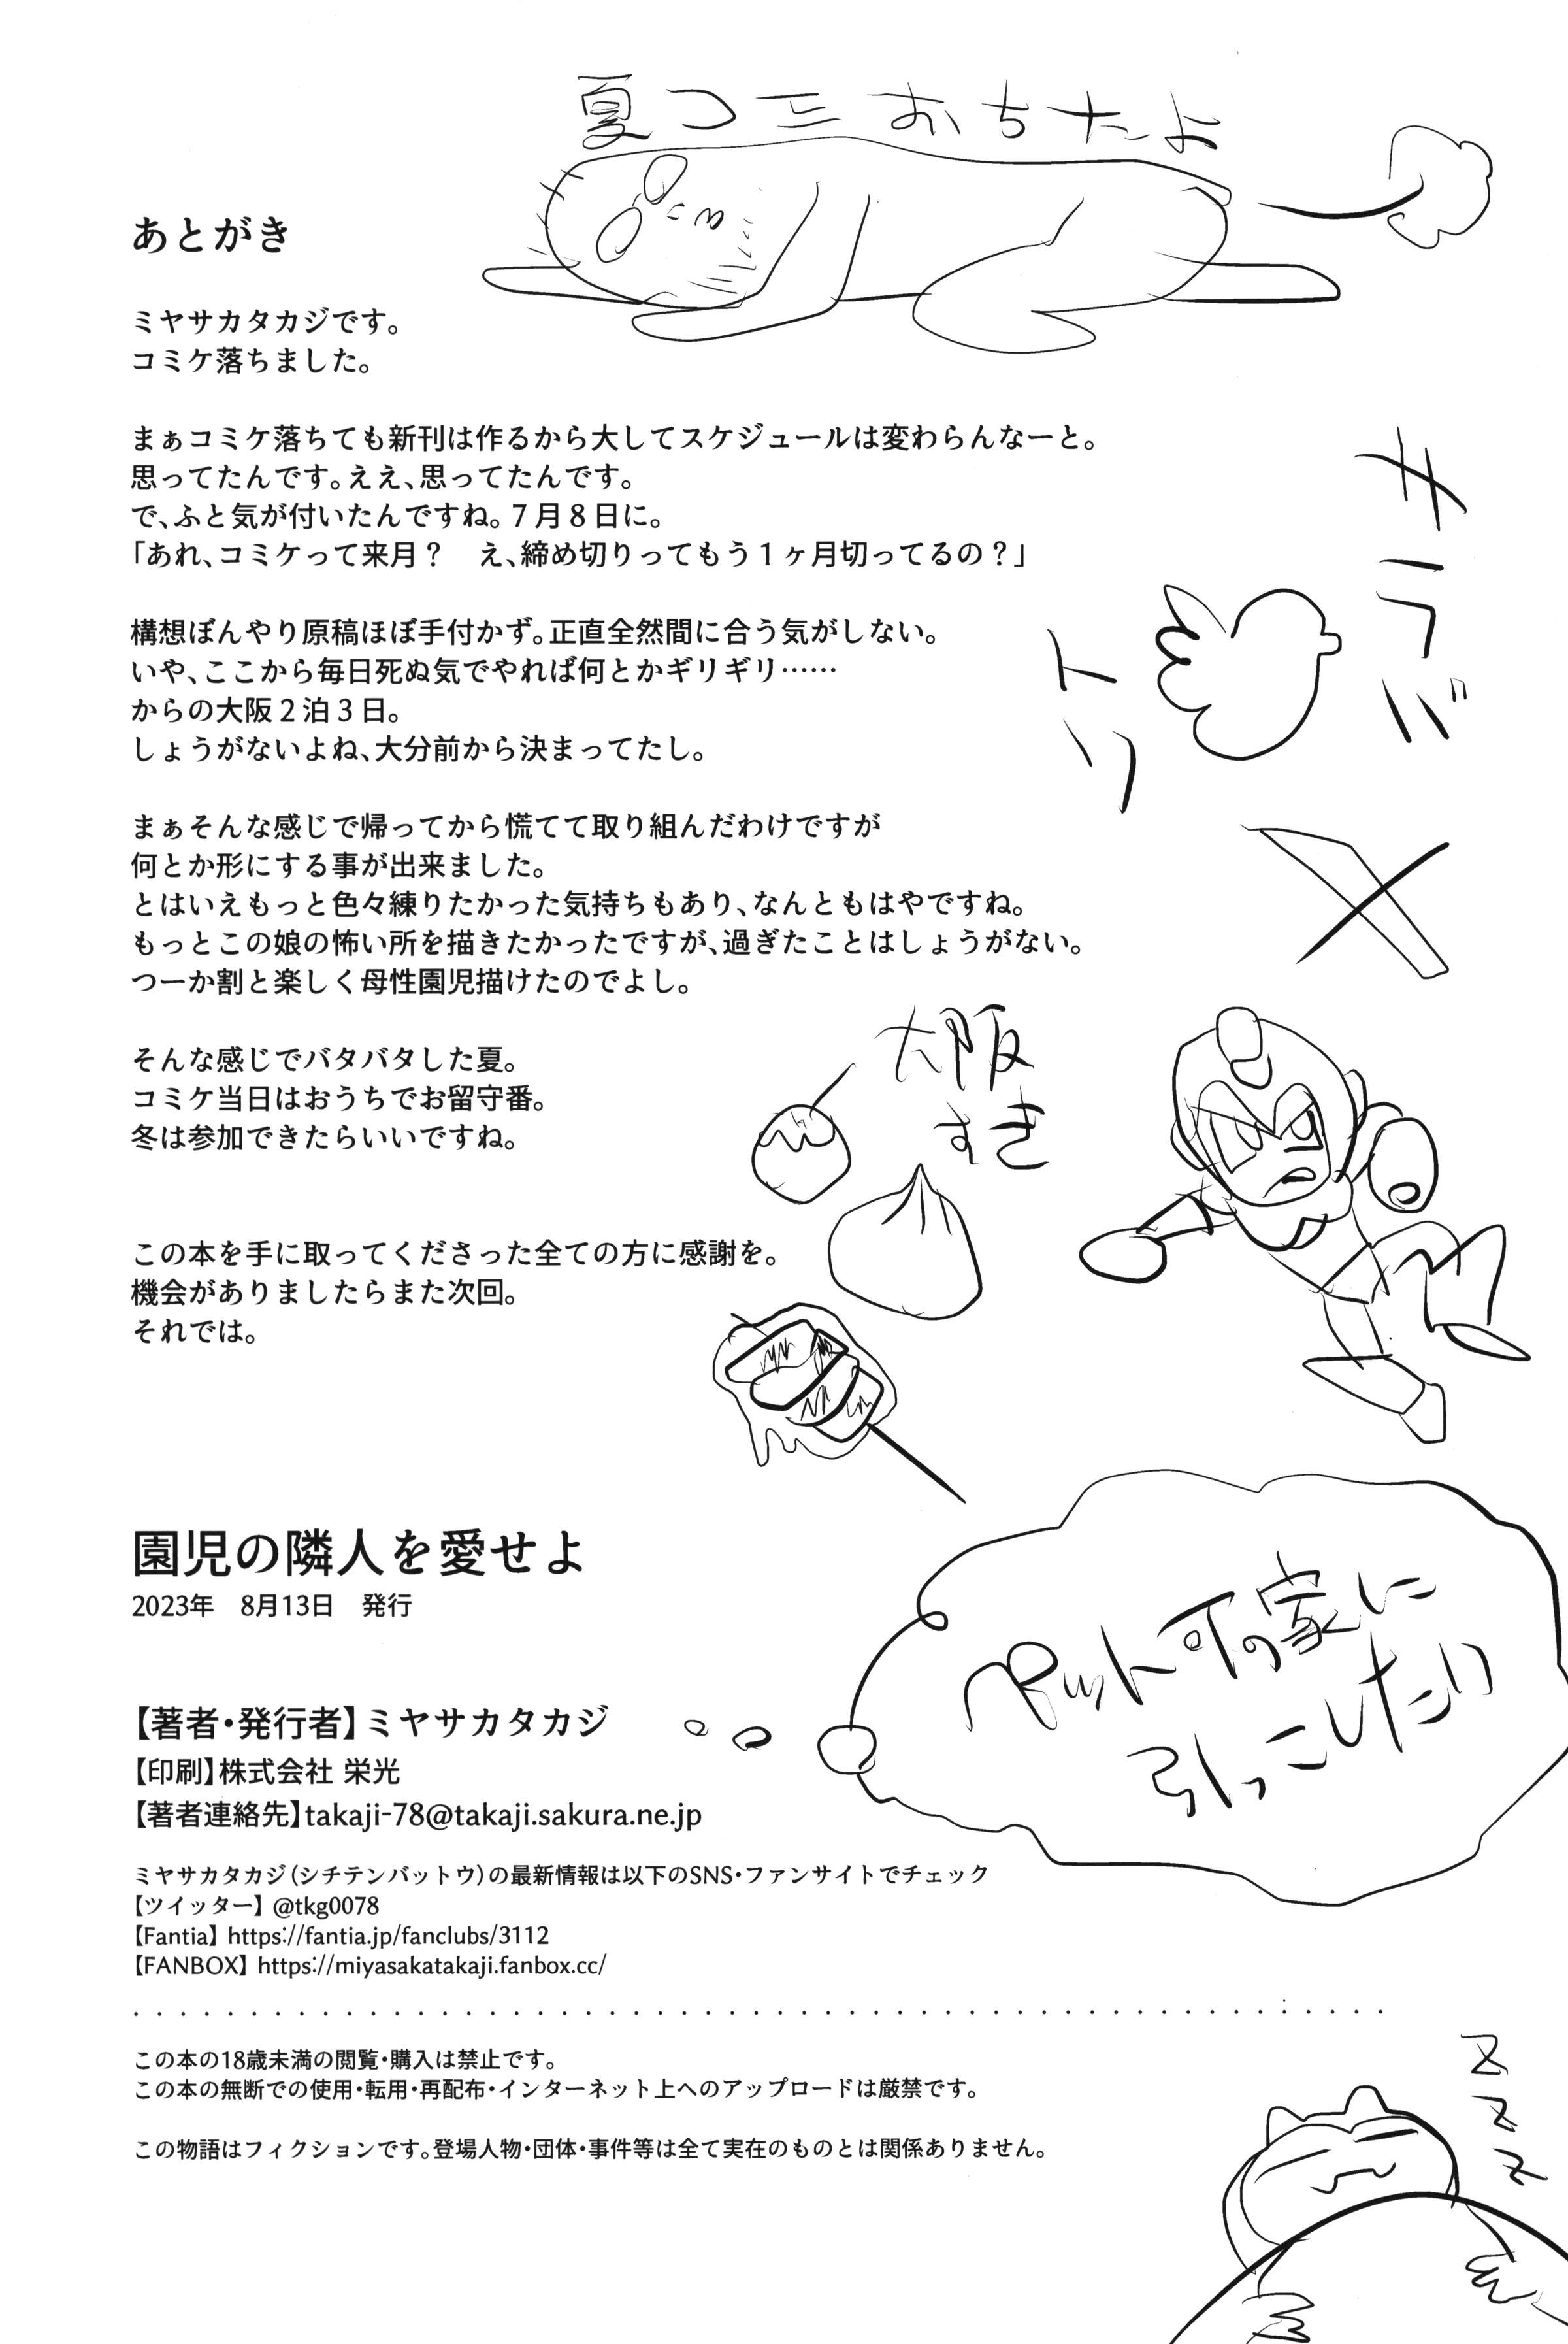 夏コミおちたよ
あとがき
ミヤサカタカジです。
コミケ落ちました。
まぁコミケ落ちても新刊は作るから大してスケジュールは変わらんなーと。
思ってたんです。ええ、思ってたんです。
で、ふと気が付いたんですね。7月8日に。
「あれ、コミケって来月？　え、締め切りってもう1ヶ月切ってるの？」
構想ぼんやり原稿ほぼ手付かず。正直全然間に合う気がしない。
いや、ここから毎日死ぬ気でやれば何とかギリギリ……
からの大阪2泊3日。
しょうがないよね、大分前から決まってたし。
サラバ
トリ
まぁそんな感じで帰ってから慌てて取り組んだわけですが
何とか形にする事が出来ました。
とはいえもっと色々練りたかった気持ちもあり、なんともはやですね。
もっとこの娘の怖い所を描きたかったですが、過ぎたことはしょうがない。
つーか割と楽しく母性園児描けたのでよし。
大阪
すき
そんな感じでバタバタした夏。
コミケ当日はおうちでお留守番。
冬は参加できたらいいですね。
この本を手に取ってくださった全ての方に感謝を。
機会がありましたらまた次回。
それでは。
園児の隣人を愛せよ
2023年　8月13日　発行
ペット可の家に
引っこしたい
【著者・発行者】ミヤサカタカジ
【印刷】株式会社 栄光
【著者連絡先】takaji-78@takaji.sakura.ne.jp
ミヤサカタカジ（シチテンバットウ）の最新情報は以下のSNS・ファンサイトでチェック
【ツイッター】@tkg0078
【Fantia】https://fantia.jp/fanclubs/3112
【FANBOX】https://miyasakatakaji.fanbox.cc/
この本の18歳未満の閲覧・購入は禁止です。
この本の無断での使用・転用・再配布・インターネット上へのアップロードは厳禁です。
この物語はフィクションです。登場人物・団体・事件等は全て実在のものとは関係ありません。
ZZZ